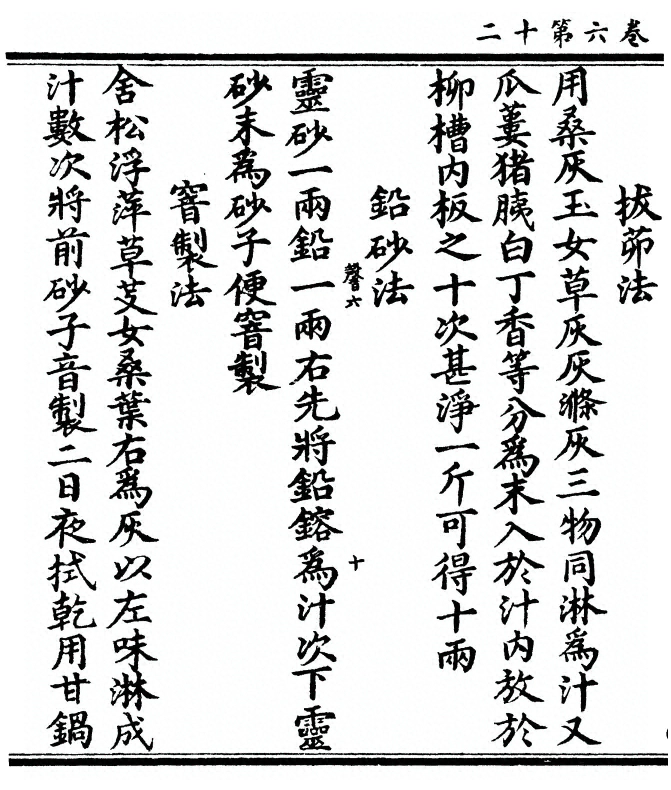 卷六第十二
拔茆法
用桑灰玉女草灰灰滌灰三物同淋為汁又
瓜蔞猪胰白丁香等分為末入於汁内放於
柳槽内板之十次甚淨一斤可得十兩
鉛砂法
靈砂一兩鉛一兩右先將鉛鎔為汁次下靈
砂末為砂子便窨製
窨製法
舍松浮萍草芰女桑葉右為灰以左味淋成
汁數次將前砂子音製二日夜拭乾用甘鍋
馨六
十